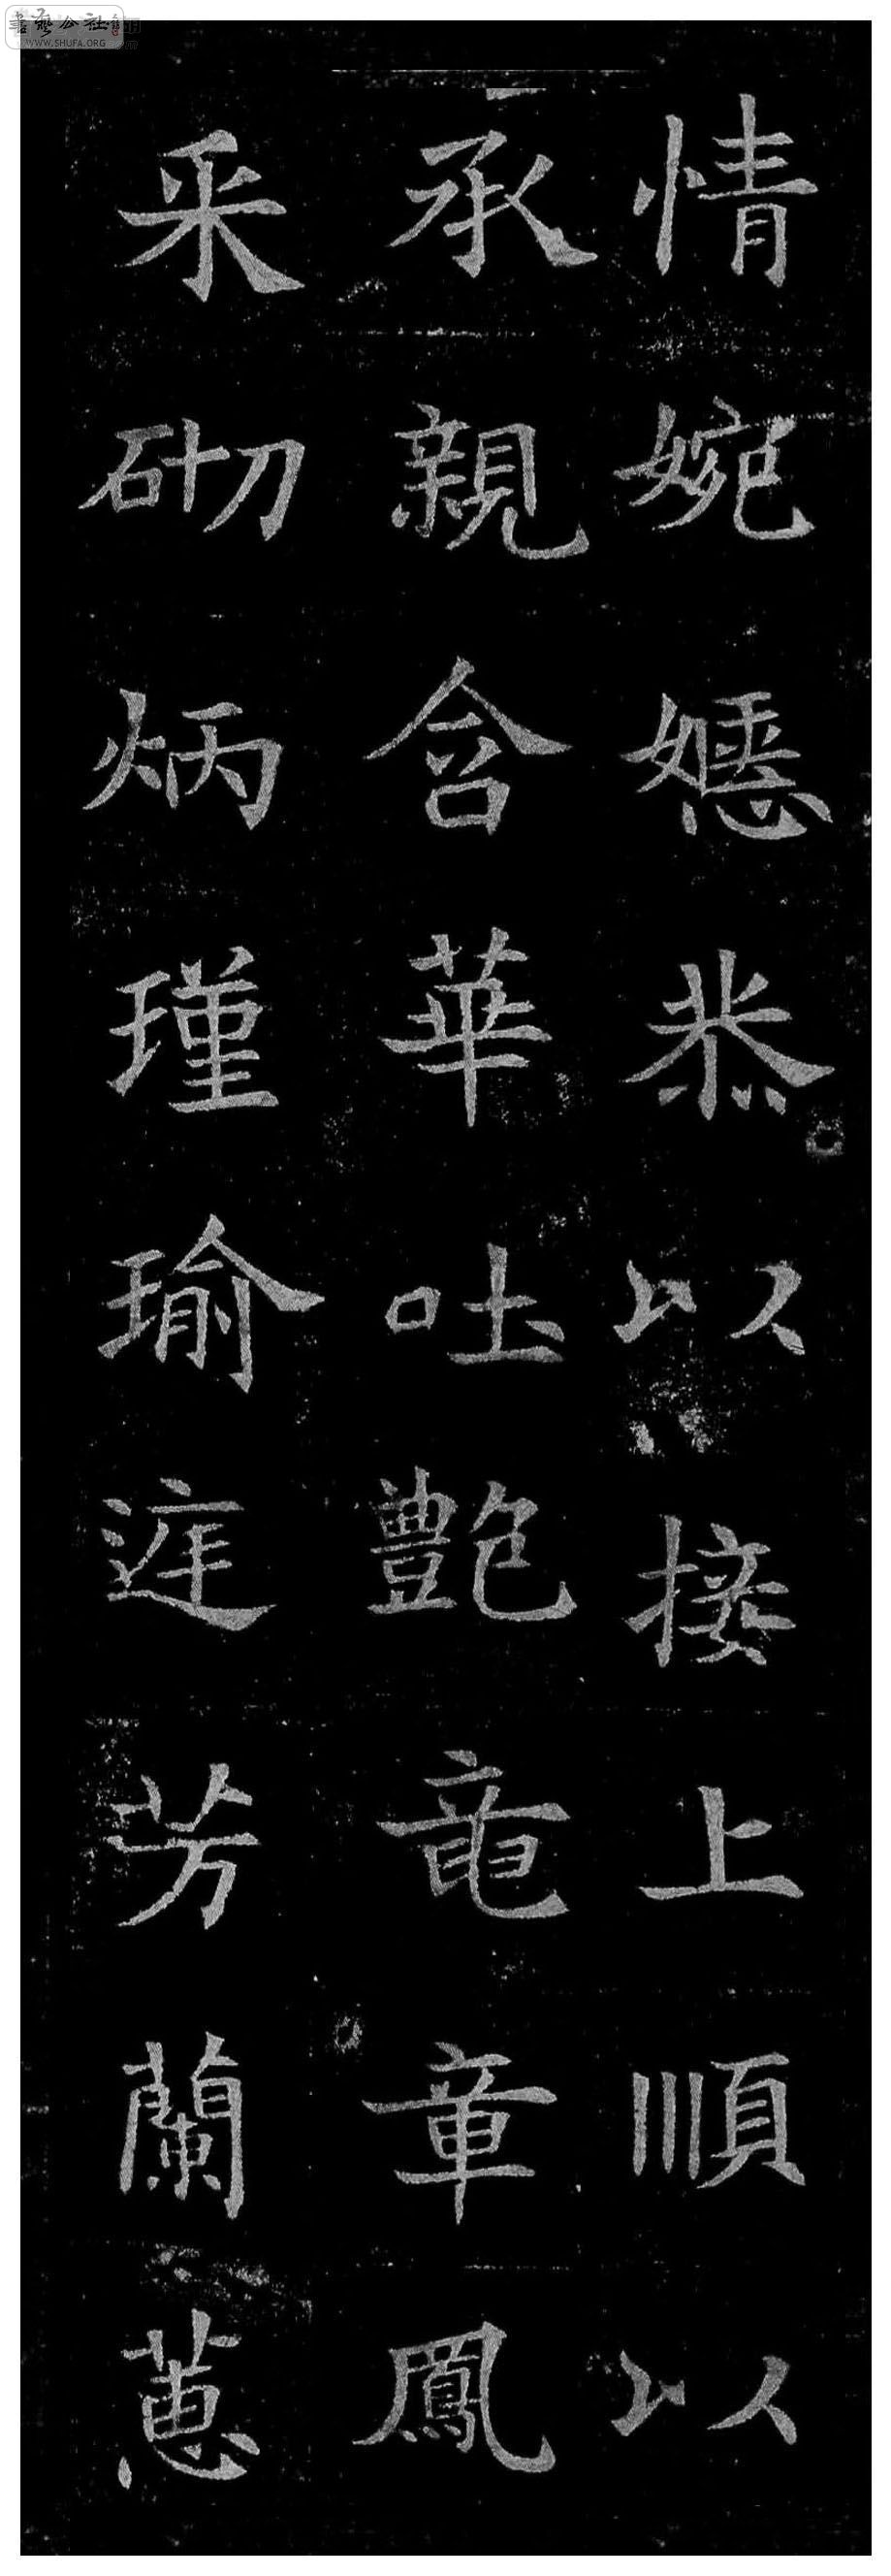 情婉嬺恭以接上順以
承親含華吐豔竜章鳳
采砌炳瑾瑜庭芳蘭蕙
書藝公社
WWW.SHUFA.ORG